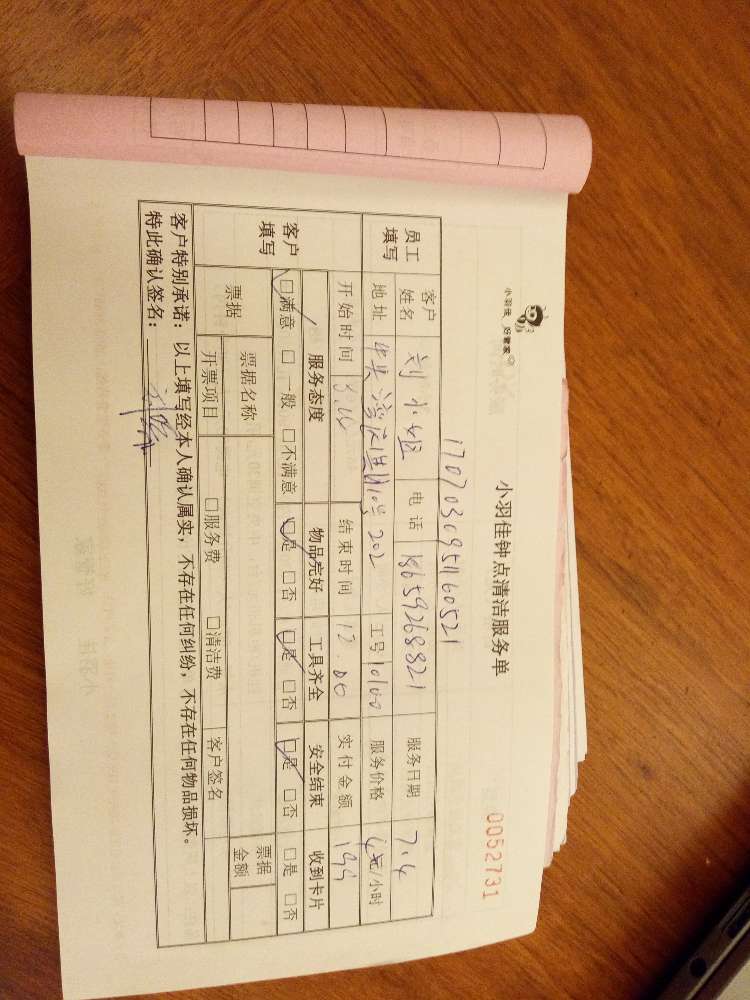 小羽佳 好管家
小羽佳钟点清洁服务单
0052731
员工填写
客户姓名 刘小姐 电话 18659268821 服务日期 7.4
地址 202 工号 10100 服务价格 /小时
开始时间 结束时间 12.00 实付金额 199
客户填写
服务态度 物品完好 工具齐全 安全结束 收到卡片
□满意 □一般 □不满意 □是 □否 □是 □否 □是 □否 □是 □否
票据 票据名称 票据金额
开票项目 □服务费 □清洁费 客户签名
客户特别承诺：以上填写经本人确认属实，不存在任何纠纷，不存在任何物品损坏。
特此确认签名：